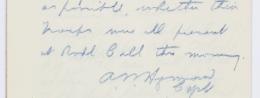 as possible, whether this
troops were all present
at Roll Call this morning.
Capt